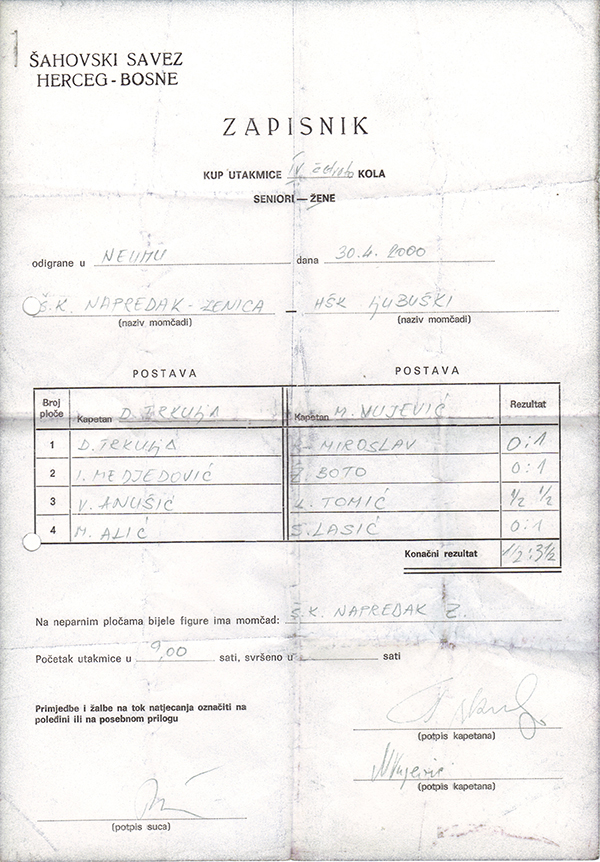 ŠAHOVSKI SAVEZ
HERCEG-BOSNE
ZAPISNIK
KUP UTAKMICE IV KOLA
SENIORI — ŽENE
odigrane u NEUMU dana 30.4. 2000
Š.K. NAPREDAK - ZENICA — HŠK LJUBUŠKI
(naziv momčadi) (naziv momčadi)
POSTAVA POSTAVA
Broj ploče Kapetan D. TRKULJA Kapetan M. VUJEVIĆ Rezultat
1 D. TRKULJA MIROSLAV 0:1
2 I. MEDJEDOVIĆ BOTO 0:1
3 V. ANUŠIĆ TOMIĆ ½ ½
4 M. ALIĆ S. LASIĆ 0:1
Konačni rezultat ½:3½
Na neparnim pločama bijele figure ima momčad: Š.K. NAPREDAK Z.
Početak utakmice u 9,00 sati, svršeno u sati
Primjedbe i žalbe na tok natjecanja označiti na
poleđini ili na posebnom prilogu
(potpis kapetana)
MVujević
(potpis kapetana)
(potpis suca)